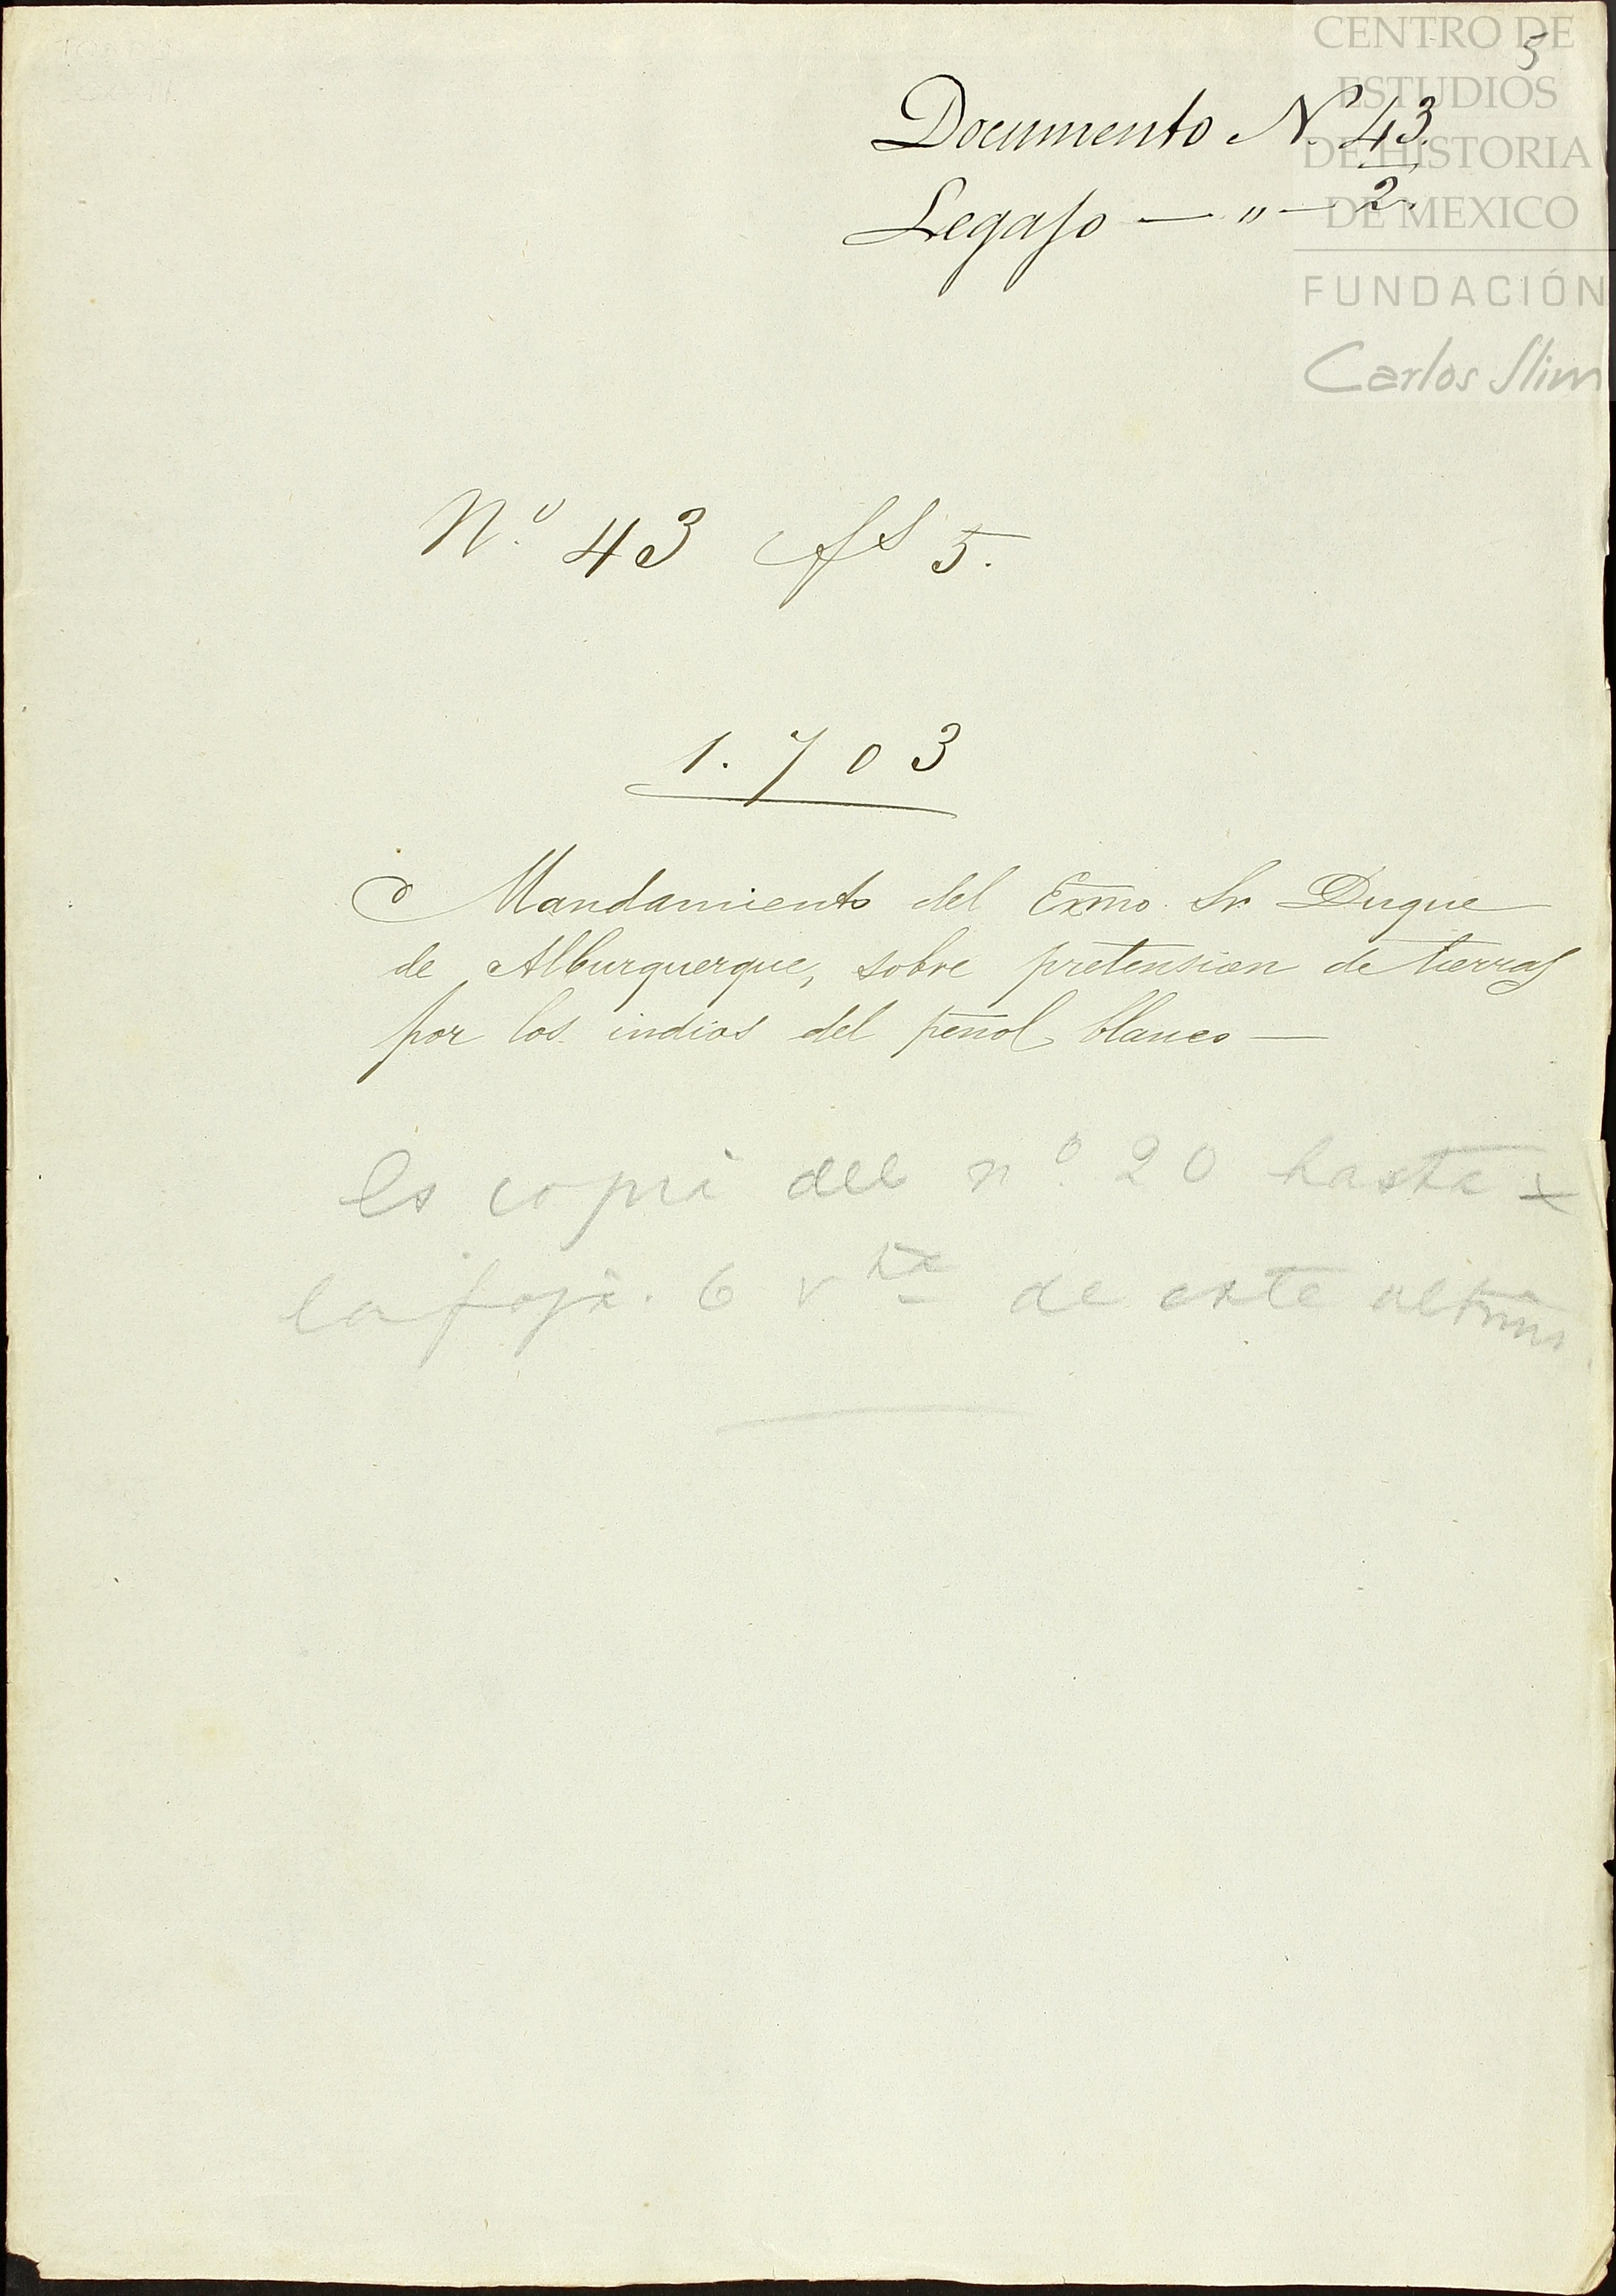 CENTRO DE
ESTUDIOS
DE HISTORIA
DE MEXICO
FUNDACIÓN
Carlos Slim
5
Documento N. 43.
Legajo — " — 2.
N.º 43 fs 5.
1.703
Mandamiento del Exmo. Sr. Duque
de Alburquerque, sobre pretension de tierras
por los indios del peñol blanco —
Es copia del nº 20 hasta
la foja. 6 vta de este ultimo.